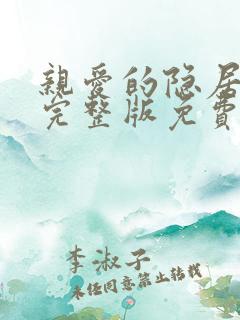 親愛的隐居
完整版免費
李淑子
未經同意禁止轉載